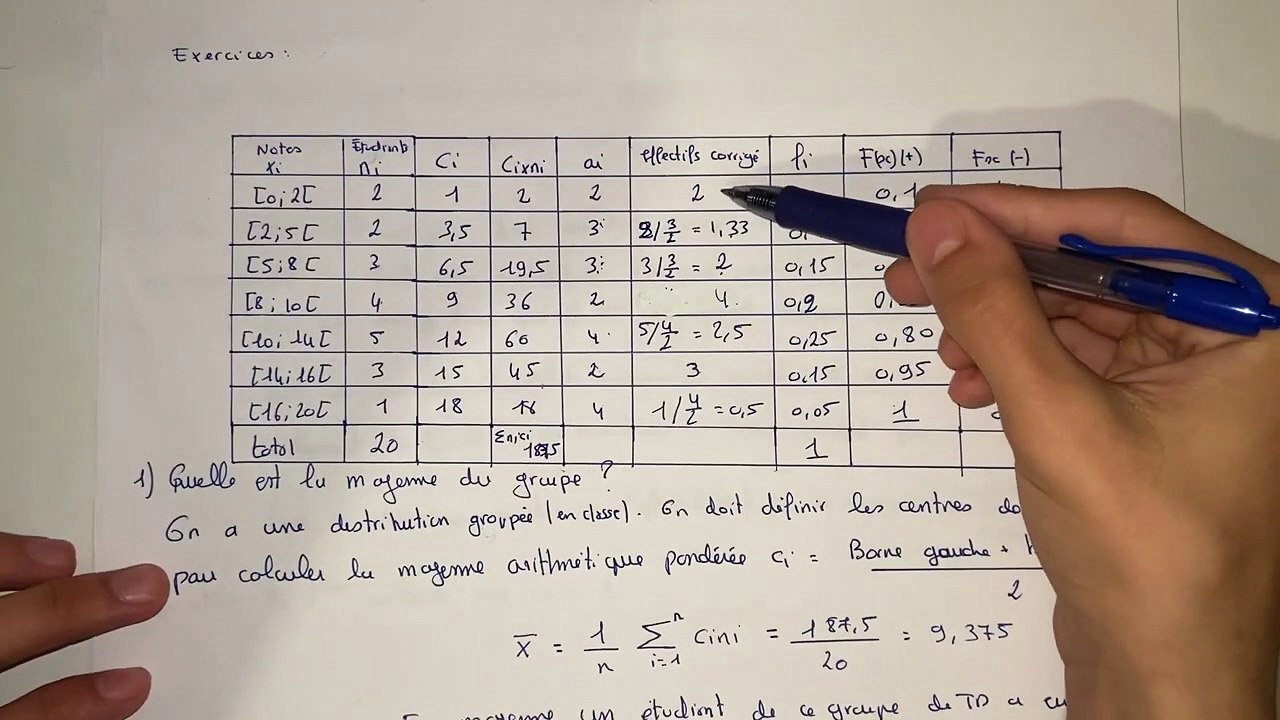 Exercices :
Notes xi Etudiants ni Ci Cixni ai effectifs corrigé fi F(x)(+) Fx (-)
[0;2[ 2 1 2 2 2 0,1
[2;5[ 2 3,5 7 3 2/3/2 = 1,33 0,
[5;8[ 3 6,5 19,5 3 3/3/2 = 2 0,15 0,
[8;10[ 4 9 36 2 4 0,2 0,
[10;14[ 5 12 60 4 5/4/2 = 2,5 0,25 0,80
[14;16[ 3 15 45 2 3 0,15 0,95
[16;20[ 1 18 18 4 1/4/2 = 0,5 0,05 1
total 20 Σnici 187,5 1
1) Quelle est la moyenne du groupe ?
On a une distribution groupée (en classe). On doit définir les centres de
pour calculer la moyenne arithmétique pondérée ci = Borne gauche +
2
x̄ = 1/n Σ^n_{i=1} cini = 187,5/20 = 9,375
moyenne un étudiant de ce groupe de TD a